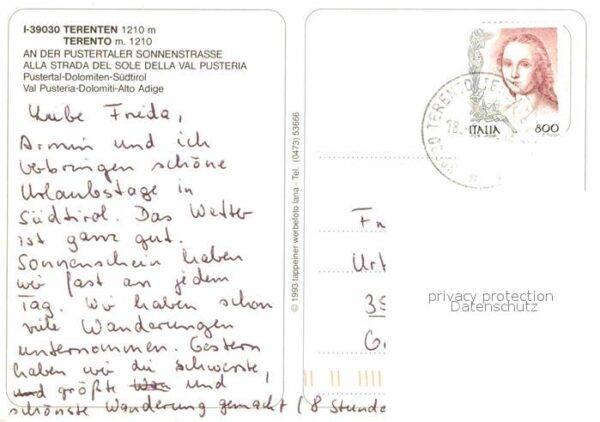 I-39030 TERENTEN 1210 m
TERENTO m. 1210
AN DER PUSTERTALER SONNENSTRASSE
ALLA STRADA DEL SOLE DELLA VAL PUSTERIA
Pustertal-Dolomiten-Südtirol
Val Pusteria-Dolomiti-Alto Adige
Liebe Frieda,
Armin und ich
verbringen schöne
Urlaubstage in
Südtirol. Das Wetter
ist ganz gut.
Sonnenschein haben
wir fast an jedem
Tag. Wir haben schon
viele Wanderungen
unternommen. Gestern
haben wir die schwerste,
und größte und
schönste Wanderung gemacht (8 Stunde
© 1993 tappeiner werbefoto lana - Tel. (0473) 53666
TERENTO
18.
ITALIA 800
Fr
Urt
35
G
privacy protection
Datenschutz